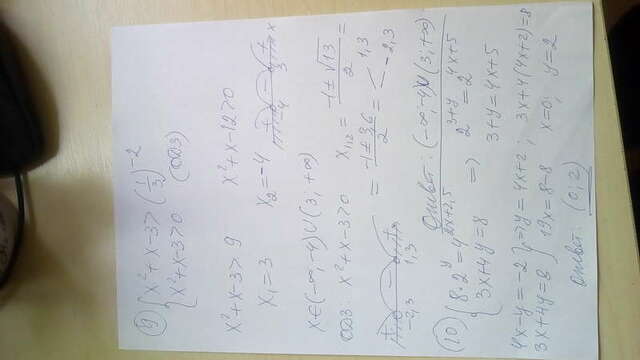 9) { x² + x - 3 > (1/3)⁻²
x² + x - 3 > 0 (ОДЗ)
x² + x - 3 > 9 x² + x - 12 > 0
x₁ = 3 x₂ = -4 + - + -4 3 x
x ∈ (-∞, -4) ∪ (3; +∞)
ОДЗ: x² + x - 3 > 0 x₁,₂ = (-1 ± √13)/2 =
= (-1 ± 3,6)/2 = < 1,3
-2,3
+ - + -2,3 1,3
Ответ: (-∞; -4) ∪ (3; +∞)
10) { 8·2ʸ = 4²ˣ⁺²,⁵ => 2³⁺ʸ = 2⁴ˣ⁺⁵
3x + 4y = 8 3 + y = 4x + 5
4x - y = -2 } => y = 4x + 2 ; 3x + 4(4x + 2) = 8
3x + 4y = 8 19x = 8 - 8 x = 0; y = 2
ответ: (0; 2)